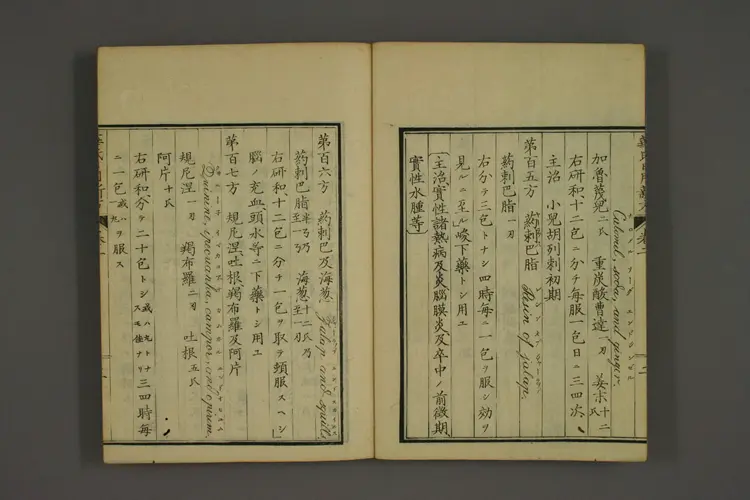 Calomel, soda, and ginger.
加魯蔑兒 二氏 重炭酸曹達 一刃 姜末 十二氏
右研和十二包ニ分チ毎服一包日ニ三四次
主治 小兒胡列刺初期
Resin of jalap.
第百五方 葯刺巴脂
葯刺巴脂 一刃
右分テ三包トナシ四時毎ニ一包ヲ服シ効ヲ
見ルニ至ル」峻下藥トシ用ユ
〔主治實性諸熱病及炎腦膜炎及卒中ノ前徴期
實性水腫等〕
Jalap and squill.
第百六方 葯刺巴及海葱
葯刺巴脂 海葱
右研和、十二包ニ分チ一包ヲ取テ頓服スヘシ」
腦ノ充血、頭水等ニ下藥トシ用ユ
第百七方 規尼涅、吐根、羯布羅及阿片
Quinine, ipecuanha, campor, and opium.
規尼涅 一刃 羯布羅 二刃 吐根 五氏
阿片 十氏
右研和、分テ二十包トシ 或ハ丸トナスモ佳ナリ 三四時毎
ニ一包 或ハ丸 ヲ服ス